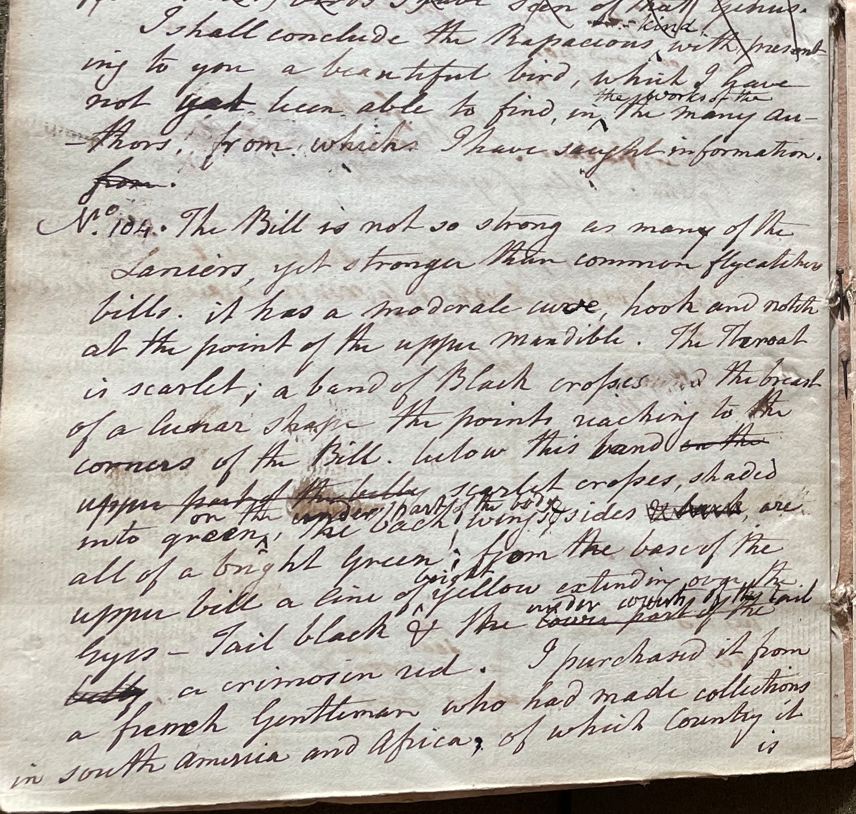 I have seen of that Genus.
kind
I shall conclude the Rapacious, with present
ing to you a beautiful bird, which I have
the works of the
not yet been able to find, in the many au-
-thors, from which I have saught information.
from.
No. 104. The Bill is not so strong as many of the
Laniers, yet stronger than common flycatchers
bills. it has a moderate curve, hook and notch
at the point of the upper mandible. The Throat
is scarlet; a band of Black crosses the breast
of a lunar shape the points reaching to the
corners of the Bill. below this band on the
upper part of the belly scarlet crosses, shaded
on the under part of the body
into green, the back, wings & sides & back, are
all of a bright Green; from the base of the
bright
upper bill a line of yellow extending over the
under coverts of the tail
Eyes – Tail black & the lower part of the
belly a crimosin red. I purchased it from
a french Gentleman who had made collections
in south America and Africa, of which Country it
is